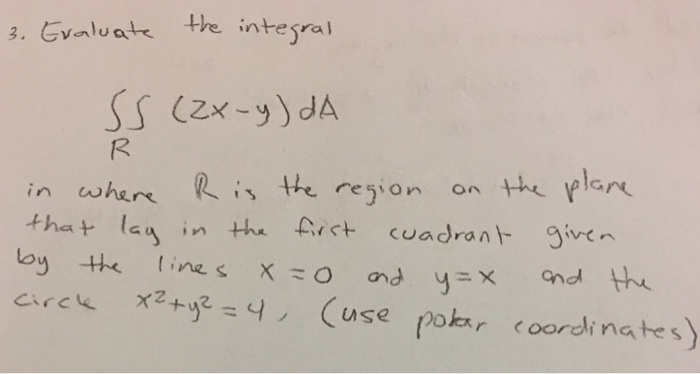 3. Evaluate the integral
∫∫ (2x-y) dA
R
in where R is the region on the plane
that lay in the first cuadrant given
by the lines x = 0 and y = x and the
circle x² + y² = 4, (use polar coordinates)